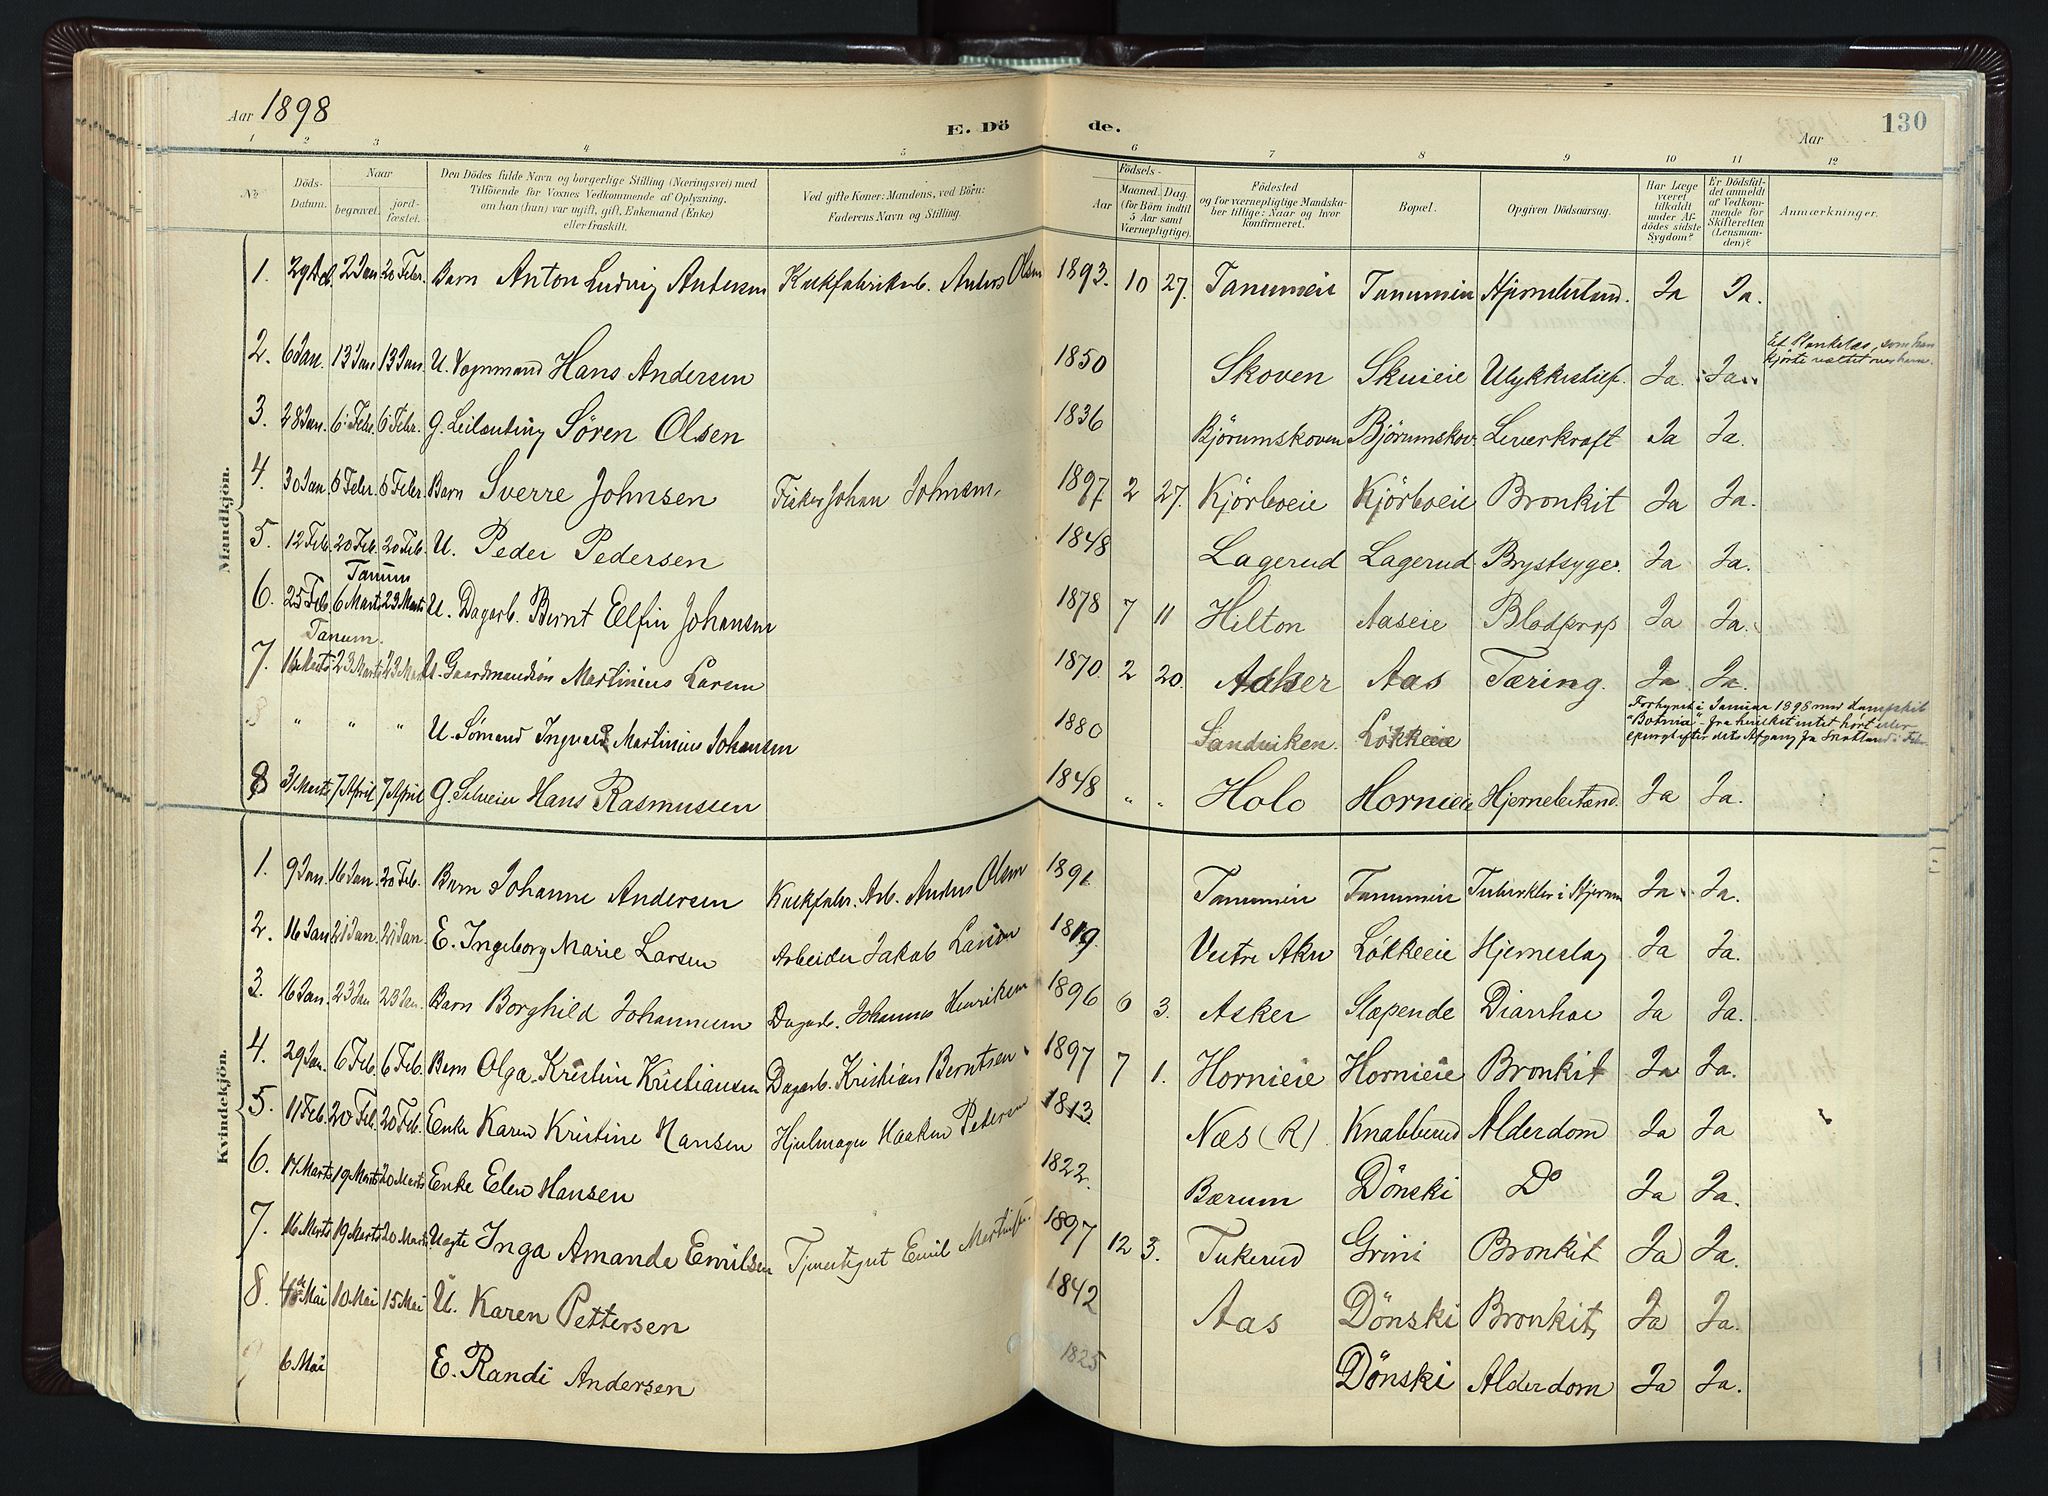 Aar 1898
E. Döde.
Aar
130
1 2 3 4 5 6 7 8 9 10 11 12
No
Döds-Datum.
Naar
begravet.
jord-fæstet.
Den Dödes fulde Navn og borgerlige Stilling (Næringsvei) med
Tilföiende for Voxnes Vedkommende af Oplysning,
om han (hun) var ugift, gift, Enkemand (Enke)
eller fraskilt.
Ved gifte Koner: Mandens, ved Börn:
Faderens Navn og Stilling.
Födsels-
Aar
Maaned. Dag.
(for Börn indtil
5 Aar samt
Værnepligtige).
Födested
og for værnepligtige Mandska-
ber tillige: Naar og hvor
konfirmeret.
Bopæl.
Opgiven Dödsaarsag.
Har Læge
været
tilkaldt
under Af-
dödes sidste
Sygdom?
Er Dödsfal-
det anmeldt
af Vedkom-
mende for
Skifteretten
(Lensman-
den)?
Anmærkninger.
Mandkjön.
1. 29 Dcb. 2 Jan 20 Febr. Barn Anton Ludvig Andersen Kalkfabrikarb. Anders Olsen 1893. 10 27. Tanumeie Tanumeie Hjernebetænd. Ja Ja.
2. 6 Jan. 13 Jan 13 Jan. U. Vognmand Hans Andersen 1850 Skoven Skuieie Ulykkestilf. Ja. Ja. Et Plankelæs, som han
kjörte væltet over ham.
3. 28 Jan. 6 Febr. 6 Febr. G. Leilending Sören Olsen 1836 Björumskoven Björumskov. Leverkræft Ja Ja.
4. 30 Jan 6 Febr 6 Febr. Barn Sverre Johnsen Fisker Johan Johnsen. 1897 2 27. Kjörboeie Kjörboeie Bronkit Ja Ja.
5. 12 Feb. 20 Feb. 20 Feb. U. Peder Pedersen 1848 Lagerud Lagerud Brystsyge. Ja Ja.
Tanum
6. 25 Feb 6 Marts 23 Marts U. Dagarb. Bernt Elfin Johansen 1878 7 11 Hilton Aaseie Blodprop Ja Ja.
Tanum.
7. 16 Marts 23 Marts 23 Marts U. Gaardmandssön Martinius Larsen 1870 2 20. Asker Aas Tæring. Ja Ja.
8 " " " U. Sömand Ingvald Martinius Johansen 1880 Sandviken. Lökkeeie Forhyret i Januar 1898 med dampskib
"Botnia" - fra hvilket intet hört eller
spurgt efter dets Afgang fra Skotland i Febr.
8 31 Marts 7 April 7 April G. Selveier Hans Rasmussen 1848 " " Holo Hornieie Hjernebetænd. Ja Ja.
Kvindekjön.
1. 9 Jan. 16 Jan. 20 Feb. Barn Johanne Andersen Kalkfabr. Arb. Anders Olsen 1891. Tanumeie Tanumeie Tuberkler i Hjernen Ja. Ja.
2. 16 Jan 21 Jan. 21 Jan. E. Ingeborg Marie Larsen Arbeider Jakob Larsen 1819. Vestre Aker Lökkeeie Hjerneslag Ja Ja.
3. 16 Jan. 23 Jan 23 Jan. Barn Borghild Johannesen Dagarb. Johannes Henriksen 1896 6 3. Asker Slæpende Diarrhoe Ja Ja.
4. 29 Jan. 6 Feb. 6 Feb. Barn Olga Kristine Kristiansen Dagarb. Kristian Berntsen. 1897 7 1. Hornieie Hornieie Bronkit Ja Ja.
5. 11 Feb. 20 Feb. 20 Feb. Enke Karen Kristine Hansen Hjulmager Haaken Pedersen 1813. Næs (R). Knabberud Alderdom Ja Ja
6. 14 Marts 19 Marts 20 Marts Enke Elen Hansen 1822. Bærum Dönski Do Ja Ja.
7. 16 Marts 19 Marts 20 Marts Uegte Inga Amanda Emilsen Tjenestegut Emil 1897 12 3. Tukerud Grini Bronkit Ja Ja.
8. 4 Mai 10 Mai 15 Mai U. Karen Pettersen 1842 Aas Dönski Bronkit, Ja Ja.
9 6 Mai E. Randi Andersen 1825 Dönski Alderdom Ja Ja.